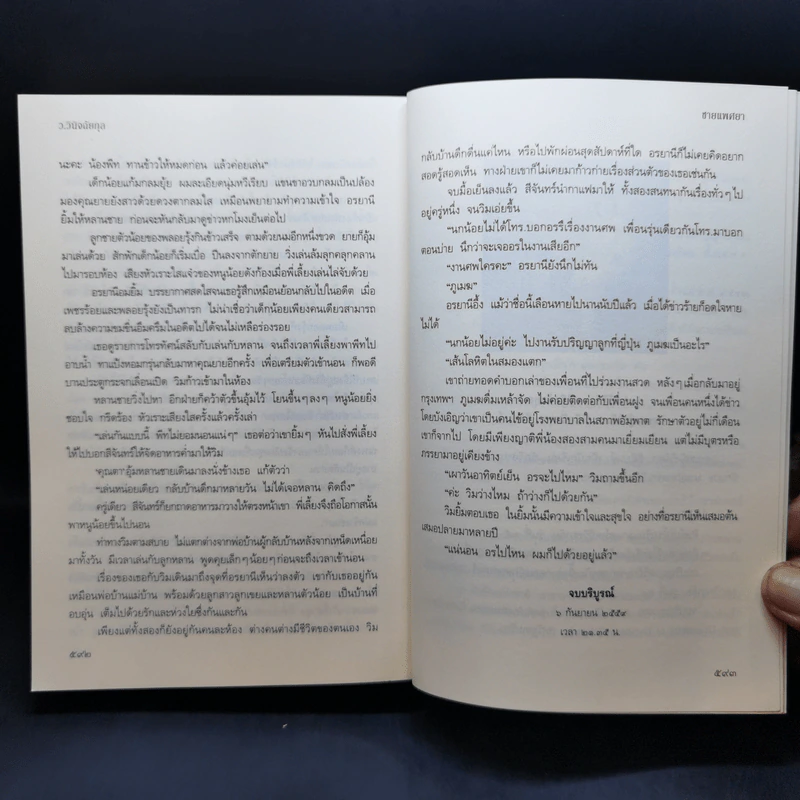 ว.วินิจฉัยกุล
นะคะ น้องพิท ทานข้าวให้หมดก่อน แล้วค่อยเล่น”
เด็กน้อยแก้มกลมยุ้ย ผมละเอียดนุ่มหวีเรียบ แขนขาอวบกลมเป็นปล้อง
มองคุณยายยังสาวด้วยดวงตากลมใส เหมือนพยายามทำความเข้าใจ อรยานี
ยิ้มให้หลานชาย ก่อนจะหันกลับมาดูข่าวหกโมงเย็นต่อไป
ลูกชายตัวน้อยของพลอยรุ้งกินข้าวเสร็จ ตามด้วยนมอีกหนึ่งขวด ยายก็อุ้ม
มาเล่นด้วย สักพักเด็กน้อยก็เริ่มเบื่อ ปีนลงจากตักยาย วิ่งเล่นล้มลุกคลุกคลาน
ไปมารอบห้อง เสียงหัวเราะใสแจ๋วของหนูน้อยดังก้องเมื่อพี่เลี้ยงเล่นไล่จับด้วย
อรยานีอมยิ้ม บรรยากาศสดใสจนเธอรู้สึกเหมือนย้อนกลับไปในอดีต เมื่อ
เพชรร้อยและพลอยรุ้งยังเป็นทารก ไม่น่าเชื่อว่าเด็กน้อยเพียงคนเดียวสามารถ
ลบล้างความขมขื่นอึมครึมในอดีตไปได้จนไม่เหลือร่องรอย
เธอดูรายการโทรทัศน์สลับกับเล่นกับหลาน จนถึงเวลาพี่เลี้ยงพาพิทไป
อาบน้ำ ทาแป้งหอมกรุ่นกลับมาหาคุณยายอีกครั้ง เพื่อเตรียมตัวเข้านอน ก็พอดี
บานประตูกระจกเลื่อนเปิด วิมก้าวเข้ามาในห้อง
หลานชายวิ่งไปหา อีกฝ่ายก็คว้าตัวขึ้นอุ้มไว้ โยนขึ้นๆลงๆ หนูน้อยยิ่ง
ชอบใจ กรีดร้อง หัวเราะเสียงใสครั้งแล้วครั้งเล่า
“เล่นกันแบบนี้ พิทไม่ยอมนอนแน่ๆ” เธอต่อว่าเขายิ้มๆ หันไปสั่งพี่เลี้ยง
ให้ไปบอกสีจันทร์ให้จัดอาหารมาให้วิม
‘คุณตา’ อุ้มหลานชายเดินมาลงนั่งข้างเธอ แก้ตัวว่า
“เล่นหน่อยเดียว กลับบ้านดึกมาหลายวัน ไม่ได้เจอหลาน คิดถึง”
ครู่เดียว สีจันทร์ก็ยกถาดอาหารมาวางให้ตรงหน้าเขา พี่เลี้ยงจึงถือโอกาสนั้น
พาหนูน้อยขึ้นไปนอน
ท่าทางวิมตามสบาย ไม่แตกต่างจากพ่อบ้านผู้กลับบ้านหลังจากเหนื่อย
มาทั้งวัน มีเวลาเล่นกับลูกหลาน พูดคุยเล็กๆน้อยๆก่อนจะถึงเวลาเข้านอน
เรื่องของเธอกับวิมเดินมาถึงจุดที่อรยานีเห็นว่าลงตัว เขากับเธออยู่กัน
เหมือนพ่อบ้านแม่บ้าน พร้อมด้วยลูกสาวลูกเขยและหลานตัวน้อย เป็นบ้านที่
อบอุ่น เต็มไปด้วยรักและห่วงใยซึ่งกันและกัน
เพียงแต่ทั้งสองก็ยังอยู่กันคนละห้อง ต่างคนต่างมีชีวิตของตนเอง วิม
๕๙๒
ชายแพศยา
กลับบ้านดึกดื่นแค่ไหน หรือไปพักผ่อนสุดสัปดาห์ที่ใด อรยานีก็ไม่เคยคิดอยาก
สอดรู้สอดเห็น ทางฝ่ายเขาก็ไม่เคยมาก้าวก่ายเรื่องส่วนตัวของเธอเช่นกัน
จบมื้อเย็นลงแล้ว สีจันทร์นำกาแฟมาให้ ทั้งสองสนทนากันเรื่องทั่วๆไป
อยู่ครู่หนึ่ง จนวิมเอ่ยขึ้น
“นกน้อยไม่ได้โทร.บอกอรรึเรื่องงานศพ เพื่อนรุ่นเดียวกันโทร.มาบอก
ตอนบ่าย นึกว่าจะเจออรในงานเสียอีก”
“งานศพใครคะ” อรยานียังนึกไม่ทัน
“ภูเมฆ”
อรยานีอึ้ง แม้ว่าชื่อนี้เลือนหายไปนานนับปีแล้ว เมื่อได้ข่าวร้ายก็อดใจหาย
ไม่ได้
“นกน้อยไม่อยู่ค่ะ ไปงานรับปริญญาลูกที่ญี่ปุ่น ภูเมฆเป็นอะไร”
“เส้นโลหิตในสมองแตก”
เขาถ่ายทอดคำบอกเล่าของเพื่อนที่ไปร่วมงานสวด หลังๆเมื่อกลับมาอยู่
กรุงเทพฯ ภูเมฆดื่มเหล้าจัด ไม่ค่อยติดต่อกับเพื่อนฝูง จนเพื่อนคนหนึ่งได้ข่าว
โดยบังเอิญว่าเขาเป็นคนไข้อยู่โรงพยาบาลในสภาพอัมพาต รักษาตัวอยู่ไม่กี่เดือน
เขาก็จากไป โดยมีเพียงญาติพี่น้องสองสามคนมาเยี่ยมเยียน แต่ไม่มีบุตรหรือ
ภรรยามาอยู่เคียงข้าง
“เผาวันอาทิตย์เย็น อรจะไปไหม” วิมถามขึ้นอีก
“ค่ะ วิมว่างไหม ถ้าว่างก็ไปด้วยกัน”
วิมยิ้มตอบเธอ ในยิ้มนั้นมีความเข้าใจและสุขใจ อย่างที่อรยานีเห็นเสมอต้น
เสมอปลายมาหลายปี
“แน่นอน อรไปไหน ผมก็ไปด้วยอยู่แล้ว”
จบบริบูรณ์
๖ กันยายน ๒๕๕๙
เวลา ๒๑.๓๕ น.
๕๙๓